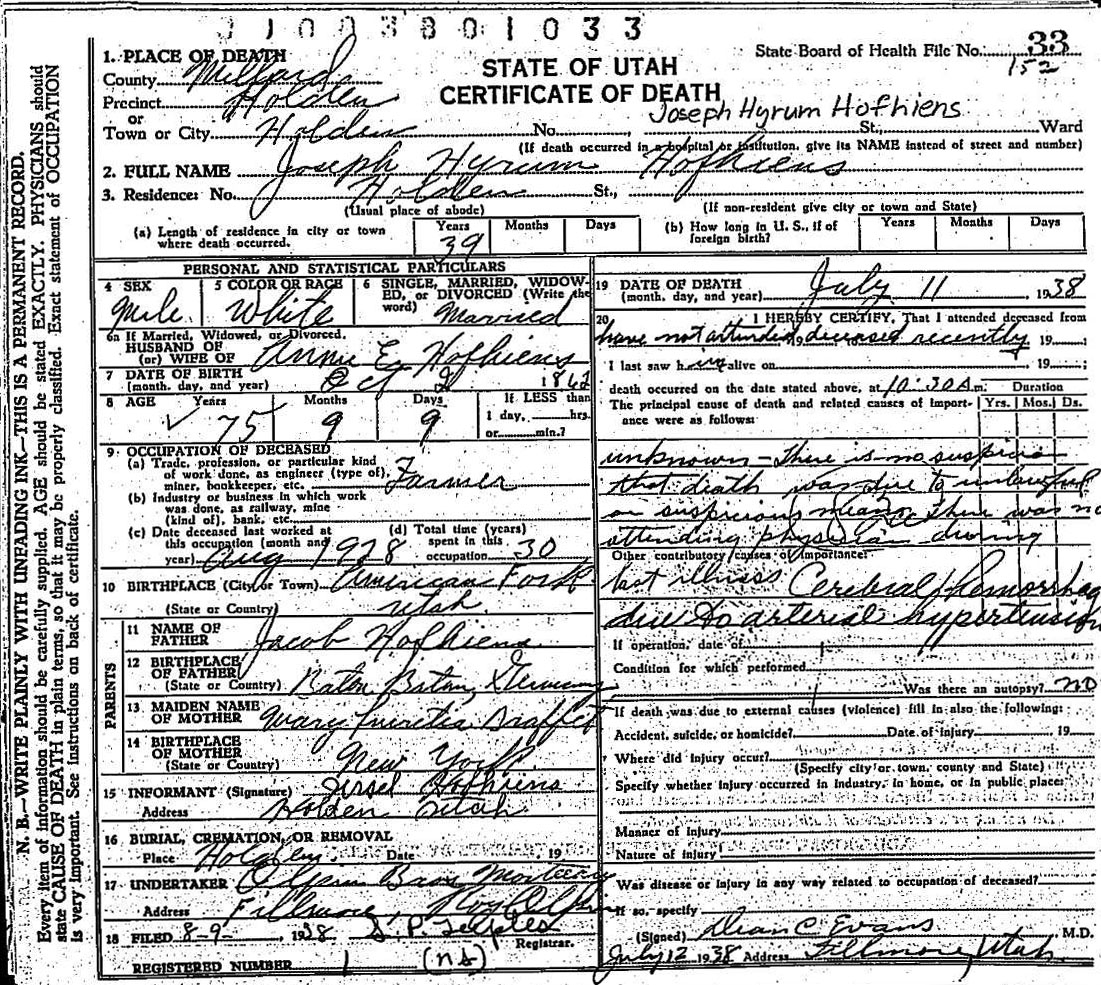 01003801033
State Board of Health File No. 33
152
STATE OF UTAH
CERTIFICATE OF DEATH
1. PLACE OF DEATH
County Millard
Precinct Holden
or
Town or City Holden No. St., Ward
Joseph Hyrum Hofhiens
(If death occurred in a hospital or institution, give its NAME instead of street and number)
2. FULL NAME Joseph Hyrum Hofhiens
3. Residence: No. Holden St.,
(Usual place of abode) (If non-resident give city or town and State)
(a) Length of residence in city or town where death occurred. Years 39 Months Days
(b) How long in U. S., if of foreign birth? Years Months Days
PERSONAL AND STATISTICAL PARTICULARS
4 SEX Male
5 COLOR OR RACE White
6 SINGLE, MARRIED, WIDOWED, or DIVORCED (Write the word) Married
6a If Married, Widowed, or Divorced.
HUSBAND OF
(or) WIFE OF Annie E. Hofhiens
7 DATE OF BIRTH
(month, day, and year) Oct 2 1862
8 AGE Years 75 Months 9 Days 9 If LESS than 1 day, hrs. or min.?
9 OCCUPATION OF DECEASED
(a) Trade, profession, or particular kind of work done, as engineer (type of), miner, bookkeeper, etc. Farmer
(b) Industry or business in which work was done, as railway, mine (kind of), bank, etc.
(c) Date deceased last worked at this occupation (month and year) Aug 1928
(d) Total time (years) spent in this occupation 30
10 BIRTHPLACE (City or Town) American Fork
(State or Country) Utah.
PARENTS
11 NAME OF FATHER Jacob Hofhiens
12 BIRTHPLACE OF FATHER
(State or Country) Germany
13 MAIDEN NAME OF MOTHER Mary
14 BIRTHPLACE OF MOTHER
(State or Country) New York.
15 INFORMANT (Signature) Hofhiens
Address Holden Utah
16 BURIAL, CREMATION, OR REMOVAL
Place Holden Date 19
17 UNDERTAKER Bros Mortuary
Address Fillmore,
18 FILED 8-9- 1938 Registrar.
REGISTERED NUMBER 1 (ns)
19 DATE OF DEATH
(month, day, and year) July 11 1938
20 I HEREBY CERTIFY, That I attended deceased from
have not attended deceased recently 19
I last saw him alive on 19
death occurred on the date stated above, at 10:30 A.m. Duration
The principal cause of death and related causes of importance were as follows: Yrs. Mos. Ds.
unknown - There is no suspicion
that death was due to unlawful
or suspicious means. There was no
attending physician during
Other contributory causes of importance:
last illness Cerebral hemorrhag
due to arterial hypertension
If operation, date of
Condition for which performed
Was there an autopsy? no
If death was due to external causes (violence) fill in also the following:
Accident, suicide, or homicide? Date of injury 19
Where did injury occur?
(Specify city or town, county and State)
Specify whether injury occurred in industry, in home, or in public place:
Manner of injury
Nature of injury
Was disease or injury in any way related to occupation of deceased?
If so, specify
(Signed) Dean C. Evans M.D.
July 12 1938 Address Fillmore, Utah
N. B.—WRITE PLAINLY WITH UNFADING INK—THIS IS A PERMANENT RECORD.
Every item of information should be carefully supplied. AGE should be stated EXACTLY. PHYSICIANS should
state CAUSE OF DEATH in plain terms, so that it may be properly classified. Exact statement of OCCUPATION
is very important. See instructions on back of certificate.